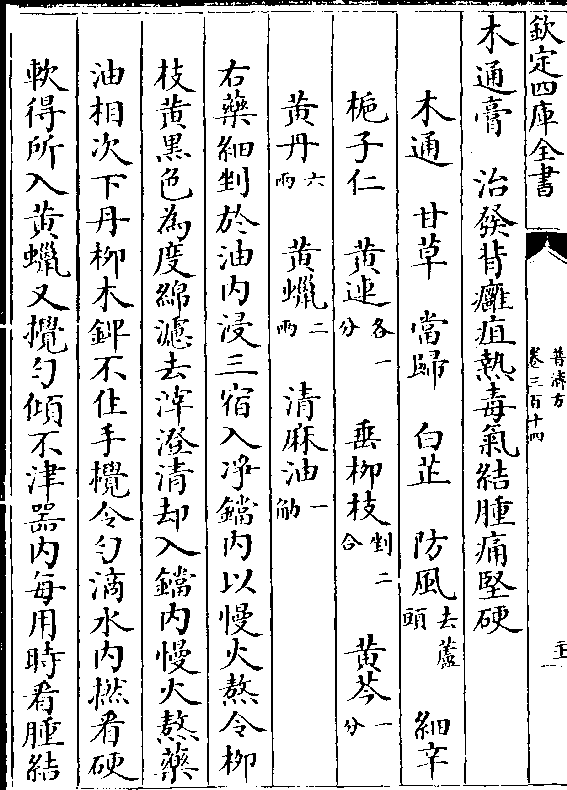 欽定四庫全書
普濟方
卷三百十四
木通膏　治發背癰疽熱毒氣結腫痛堅硬
木通　甘草　當歸　白芷　防風去蘆頭　細辛
梔子仁　黄連各一分　垂柳枝剉二合　黄芩一分
黄丹六兩　黄蠟二兩　清麻油一觔
右藥細剉於油内浸三宿入净鐺内以慢火熬令柳
枝黄黑色為度綿濾去滓澄清却入鐺内慢火熬藥
油相次下丹柳木鎞不住手攪令匀滴水内撚看硬
軟得所入黄蠟又攪匀傾不津器内每用時看腫結